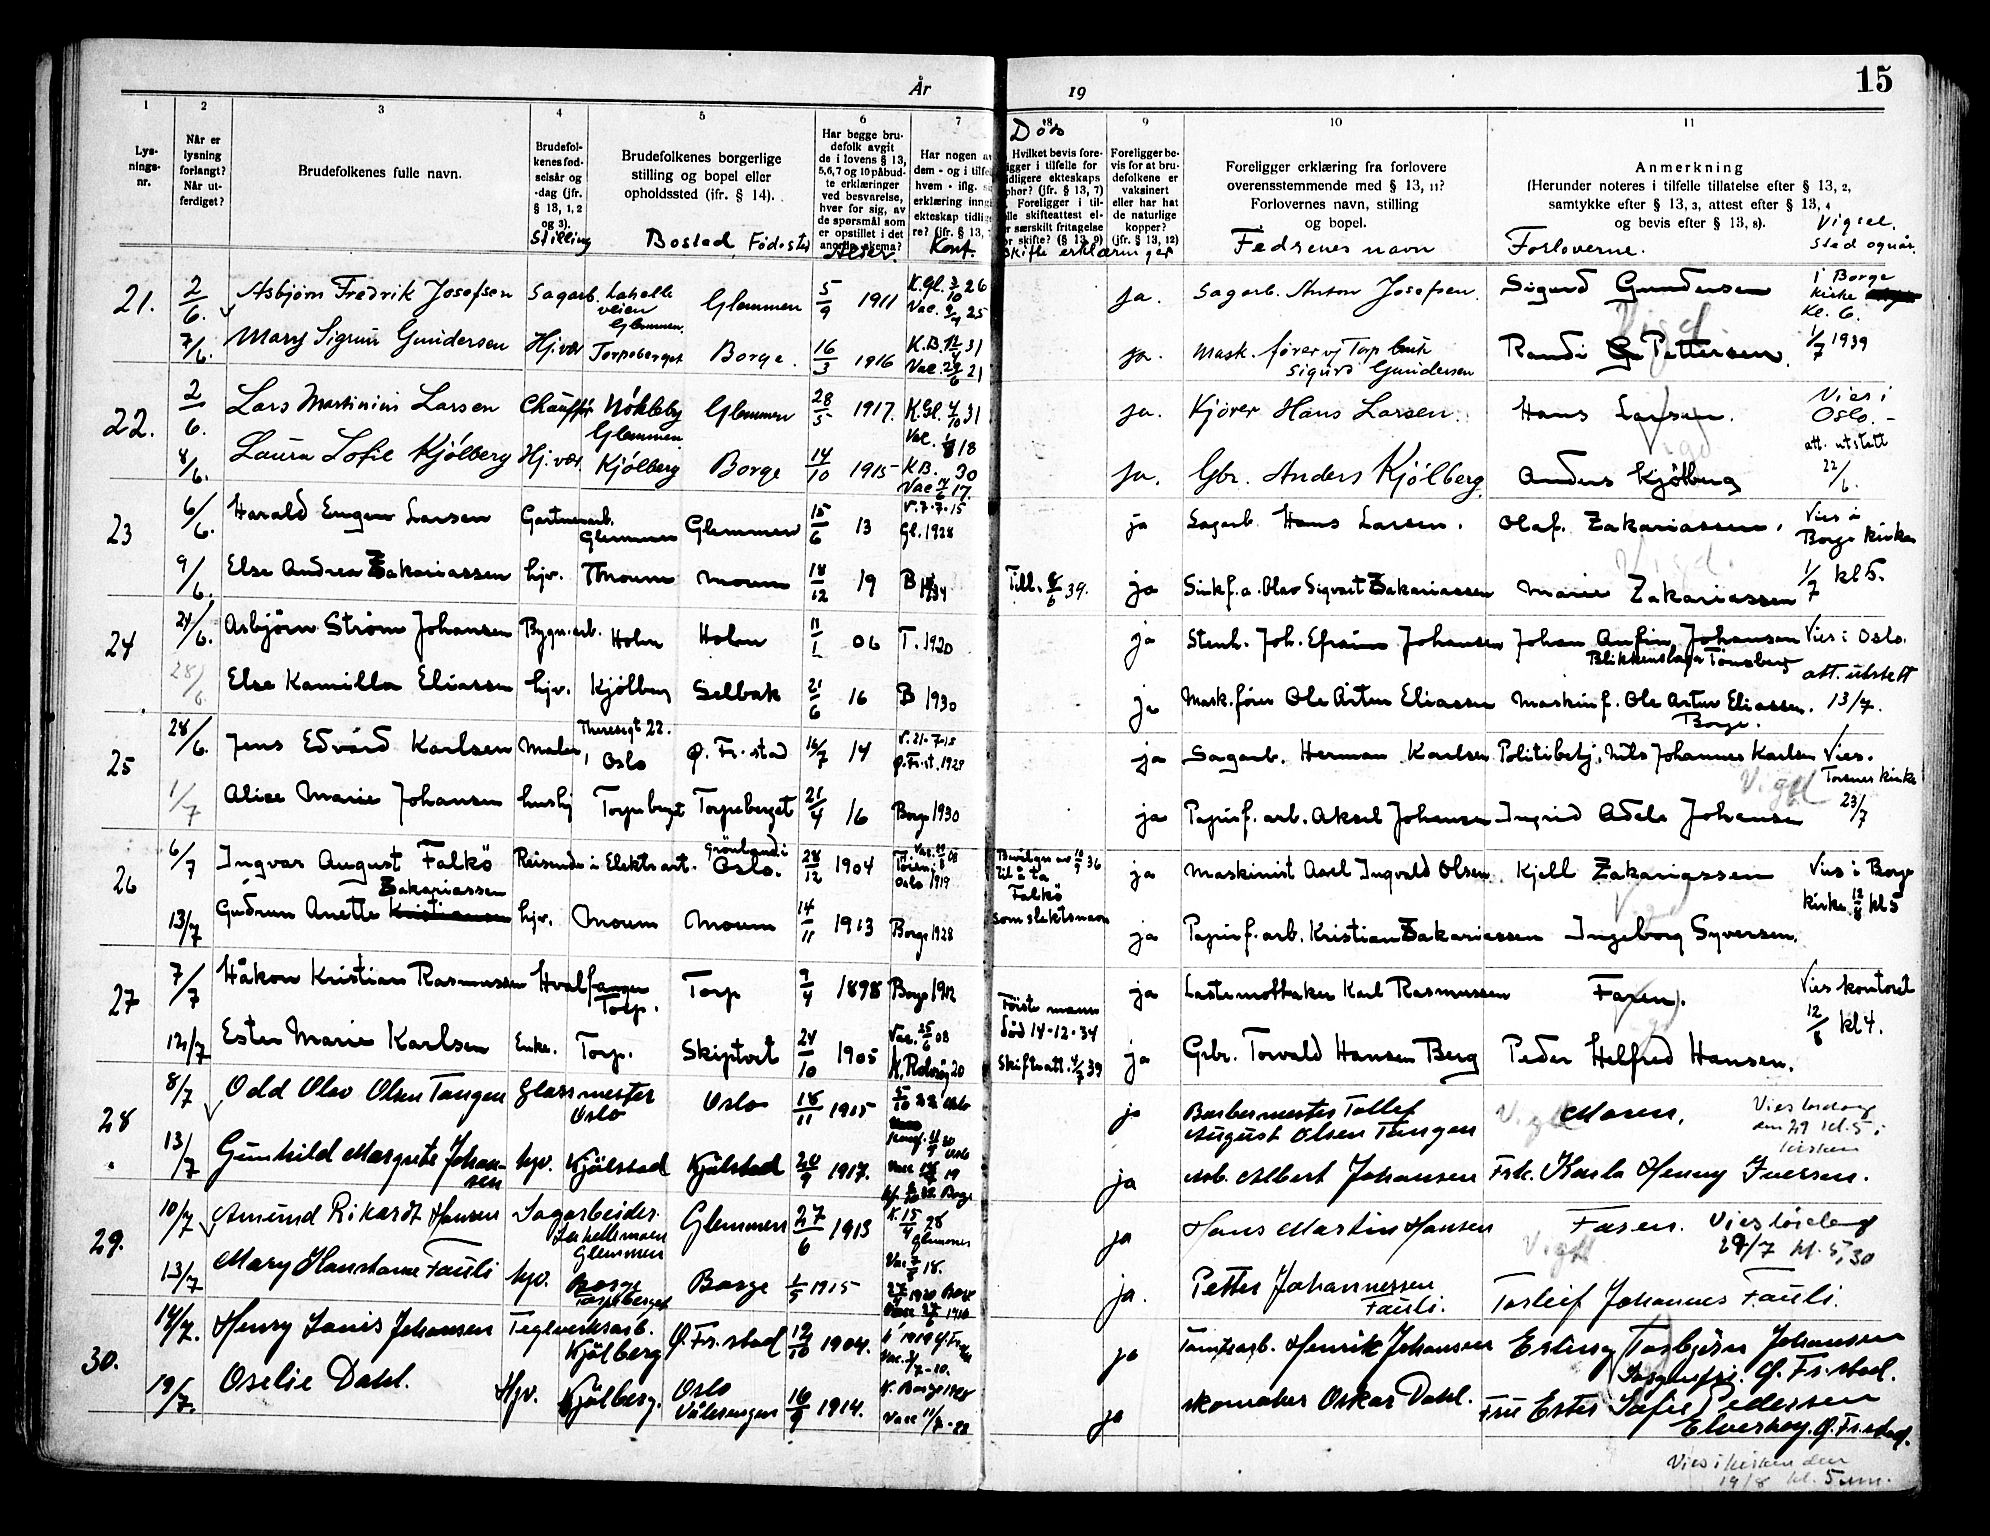 År
19
15
1
2
3
4
5
6
7
8
9
10
11
Lys-
nings-
nr.
Når er
lysning
forlangt?
Når ut-
ferdiget?
Brudefolkenes fulle navn.
Brudefol-
kenes fød-
selsår og
-dag (jfr.
§ 13, 1, 2
og 3).
Stilling
Brudefolkenes borgerlige
stilling og bopel eller
opholdssted (ifr. § 14).
Bostad, Fødested
Har begge bru-
defolk avgit
de i lovens § 13,
5,6,7 og 10 påbud-
te erklæringer
ved besvarelse,
hver for sig, av
de spørsmål som
er opstillet i det
Alder.
Har nogen av
dem - og i tilfe
hvem - iflg.
erklæring inng
ekteskap tidlig
re? (jfr. § 13,
Konf.
Døds
Hvilket bevis fore-
ligger i tilfelle for
tidligere ekteskaps
ophør? (jfr. § 13, 7)
Foreligger i til-
felle skifteattest el-
ler særskilt fritagelse
for skifte? (§ 13, 9)
Skifte erklæringer
Foreligger be-
vis for at bru-
defolkene er
vaksinert
eller har hat
de naturlige
kopper?
(jfr. § 13, 12)
Foreligger erklæring fra forlovere
overensstemmende med § 13, 11?
Forlovernes navn, stilling
og bopel.
Fedrenes navn
Anmerkning
(Herunder noteres i tilfelle tillatelse efter § 13, 2,
samtykke efter § 13, 3, attest efter § 13, 4
og bevis efter § 13, 8).
Forloverne.
Vigsel.
Stad og når
21. 2/6. Asbjørn Fredrik Josefsen Sagarb. Glemmen 5/9 1911 K.Gl. 3/10 26
ja. Sagarb. Anton Josefsen. Sigurd Gundersen i Borge
kirke
Kl. 6.
Vigd.
7/6. Mary Sigrun Gundersen Hj.vær Torpeberget Borge. 16/3 1916
ja. Mask. fører v/ Torp bruk
Sigurd Gundersen
Randi Pettersen. 1/7 1939
22. 2/6. Lars Martinius Larsen Chauffør Nökleby
Glemmen
Glemmen 28/5 1917.
ja. Kjører Hans Larsen. Hans Larsen. Vies i
Oslo.
att. utstett
22/6.
8/6. Laura Sofie Kjölberg Hj.vær Kjölberg Borge 14/10 1915 K.B. 30
ja. Gbr. Anders Kjölberg. Anders Kjölberg
23 6/6. Harald Eugen Larsen Gartnerarb.
Glemmen
Glemmen 15/6 13 V. 7-7-15
Gl. 1928
ja Sagarb. Hans Larsen. Olaf. Zakariassen. Vies i
Borge kirke
1/7 kl 5.
Vigd.
9/6. Else Andrea Zakariassen hjv. Moum Moum 18/12 19 B 1934
Till. 8/6 39. ja Olav Sigvart Zakariassen Marie Zakariassen
24 24/6. Asbjörn Ström Johansen Bygn.arb. Holm Holm 11/1 06 T. 1920
ja Stenh. Joh. Efraim Johansen Johan Anfin Johansen
Blikkenslager Tönsberg
Vies i Oslo.
att. utstett
13/7.
28/6 Else Kamilla Eliassen hjv. Kjölberg Selbak 21/6 16 B 1930
ja Mask.förer Ole Artur Eliassen Maskinf. Ole Artur Eliassen.
Borge.
25 28/6. Jens Edvard Karlsen Maler, Theresegt 22.
Oslo
Ø. Fr. stad 16/7 14 Ø.Fr.st. 1929
ja Sagarb. Herman Karlsen Politibetj. Nils Johannes Karlsen Vies.
Torsnes kirke
23/7
Vigd
1/7 Alice Marie Johansen hushj Torpebergt Torpeberget 21/4 16 Borge 1930
ja Papirf. arb. Aksel Johansen Ingrid Adele Johansen
26 6/7 Ingvar August Falkö Reisende i Elektr.art. Grönland i
Oslo.
28/12 1904 Oslo 1919
Bevilgn av 10/9 36
til å ta
Falkö
som slektsnavn
ja Maskinist Axel Ingvald Olsen. Kjell Zakariassen Vies i Borge
kirke. 12/8 kl 5
13/7 Gudrun Anette Kristiansen Zakariassen hjv. Moum Moum 14/11 1913 Borge 1928
ja Papirf. arb. Kristian Zakariassen Ingeborg Syversen.
27 7/7 Håkon Kristian Rasmussen Hvalfanger
Torp.
Torp 9/4 1898 Borge 1912
ja Lastemottaker Karl Rasmussen Faren. Vies kontoret
12/8 kl 4.
12/7 Ester Marie Karlsen Enke. Torp. Skiptvet 24/10 1905 Vac. 25/6 08
Förste mann
död 14-12-34
Skifteatt. 4/7 39
ja Grbr. Torvald Hansen Berg Peder Helfred Hansen.
28 8/7 Odd Olav Olsen Tangen Glassmester
Oslo
Oslo 18/11 1915
ja Barbermester Tollef
August Olsen Tangen
Vigd Moren. Vies lördag
den 29 kl. 5 i
kirken
13/7 Gunhild Margrete Johan-
sen
hjv. Kjölstad Kjölstad 24/9 1917.
ja Arb. Albert Johansen Frk. Karla Henny Iversen.
29. 10/7 Amund Rikardt Hansen Sagarbeider
Glemmen
Glemmen 27/6 1913 K. 15/4 28
Glemmen
ja Hans Martin Hansen Faren. Vies lördag
29/7 kl. 5,30
Vigd
13/7 Mary Konstanse Fauli hjv. Borge
Torpeberget
Borge 1/5 1915
ja. Petter Johannessen
Fauli.
Torleif Johannes Fauli.
30. 14/7. Henry Louis Johansen Teglverksarb.
Kjölberg
Ø. Fr.stad 12/10 1904.
ja Tomtearb. Henrik Johansen Erling Torbjörn Johansen
Ø. Fr.stad.
19/7. Oselie Dahl. Hjv. Kjölberg. Oslo
Vålerengen
16/9 1914. K. Borge
Vacc 11/7-22
ja skomaker Oskar Dahl. Fru Ester Sofie Pedersen
Elverhöy. Ø. Fr.stad.
Vies i kirken den
19/8 kl. 5 em.